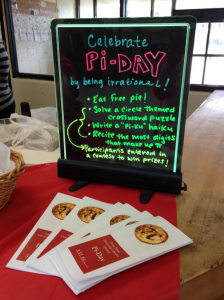 Celebrate
PI-DAY
by being irrational!
• Eat free pie!
• Solve a circle themed
crossword puzzle
• Write a "Pi-ku" haiku
• Recite the most digits
that make up π
*Participants entered in
a contest to win prizes!
Pi-Day